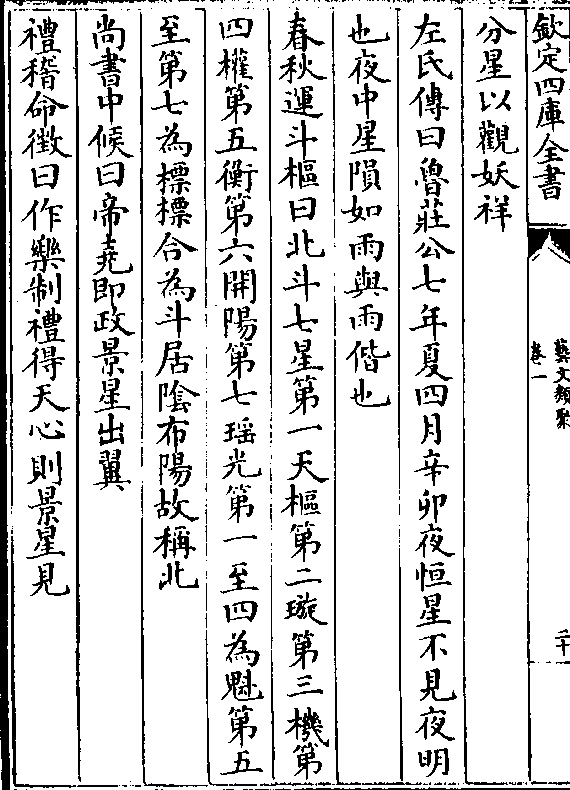 欽定四庫全書
藝文類聚
卷一
二十
分星以觀妖祥
左氏傳曰魯莊公七年夏四月辛卯夜恒星不見夜明
也夜中星隕如雨與雨偕也
春秋運斗樞曰北斗七星第一天樞第二璇第三機第
四權第五衡第六開陽第七瑶光第一至四為魁第五
至第七為標標合為斗居隂布陽故稱北
尚書中候曰帝堯即政景星出翼
禮稽命徴曰作樂制禮得天心則景星見